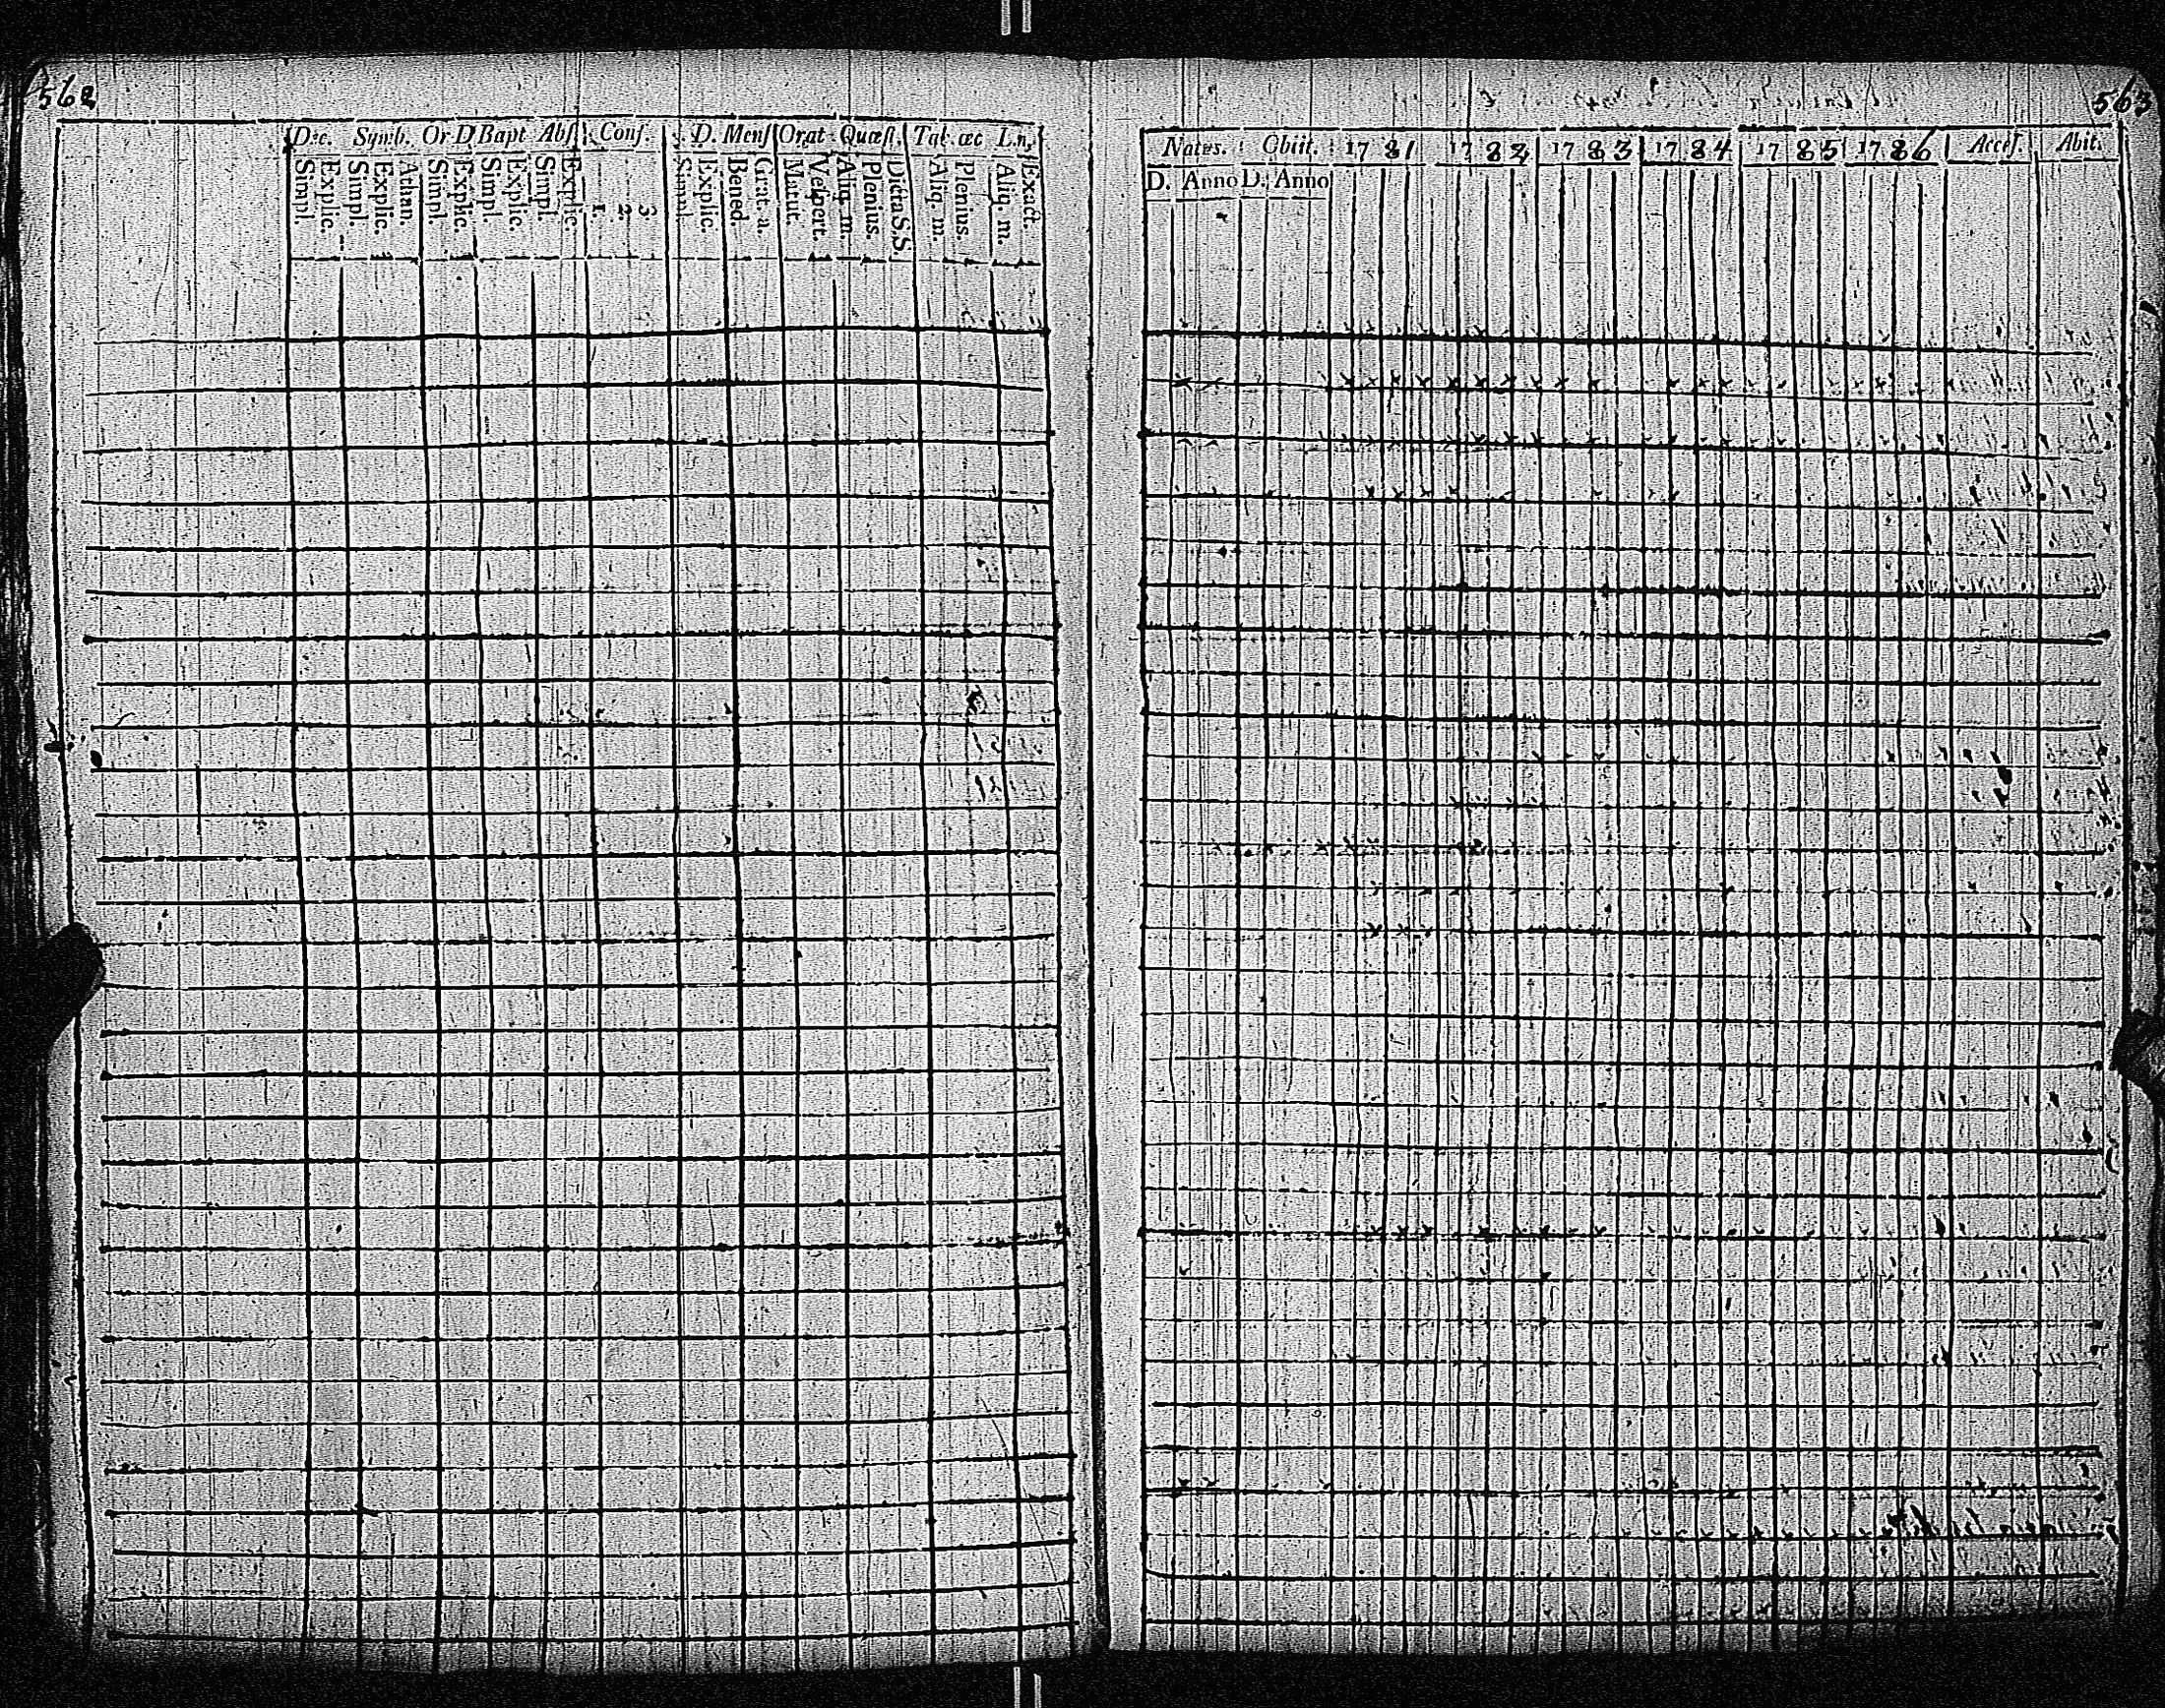 562
Dec. Symb. Or D Bapt Abs. Conf. D. Mens Orat Quæst. Tab. œc L.n.
Simpl. Explic. Simpl. Explic. Athan. Simpl. Explic. Simpl. Explic. Simpl. Explic. 1. 2 3 Simpl. Explic. Bened. Grat. a. Matut. Vespert. Aliq. m. Plenius. Dicta S.S Aliq. m. Plenius. Aliq. m. Exact.
563
Natus. Obiit. 17 81 17 82 17 83 17 84 17 85 17 86 Access. Abit.
D. Anno D. Anno